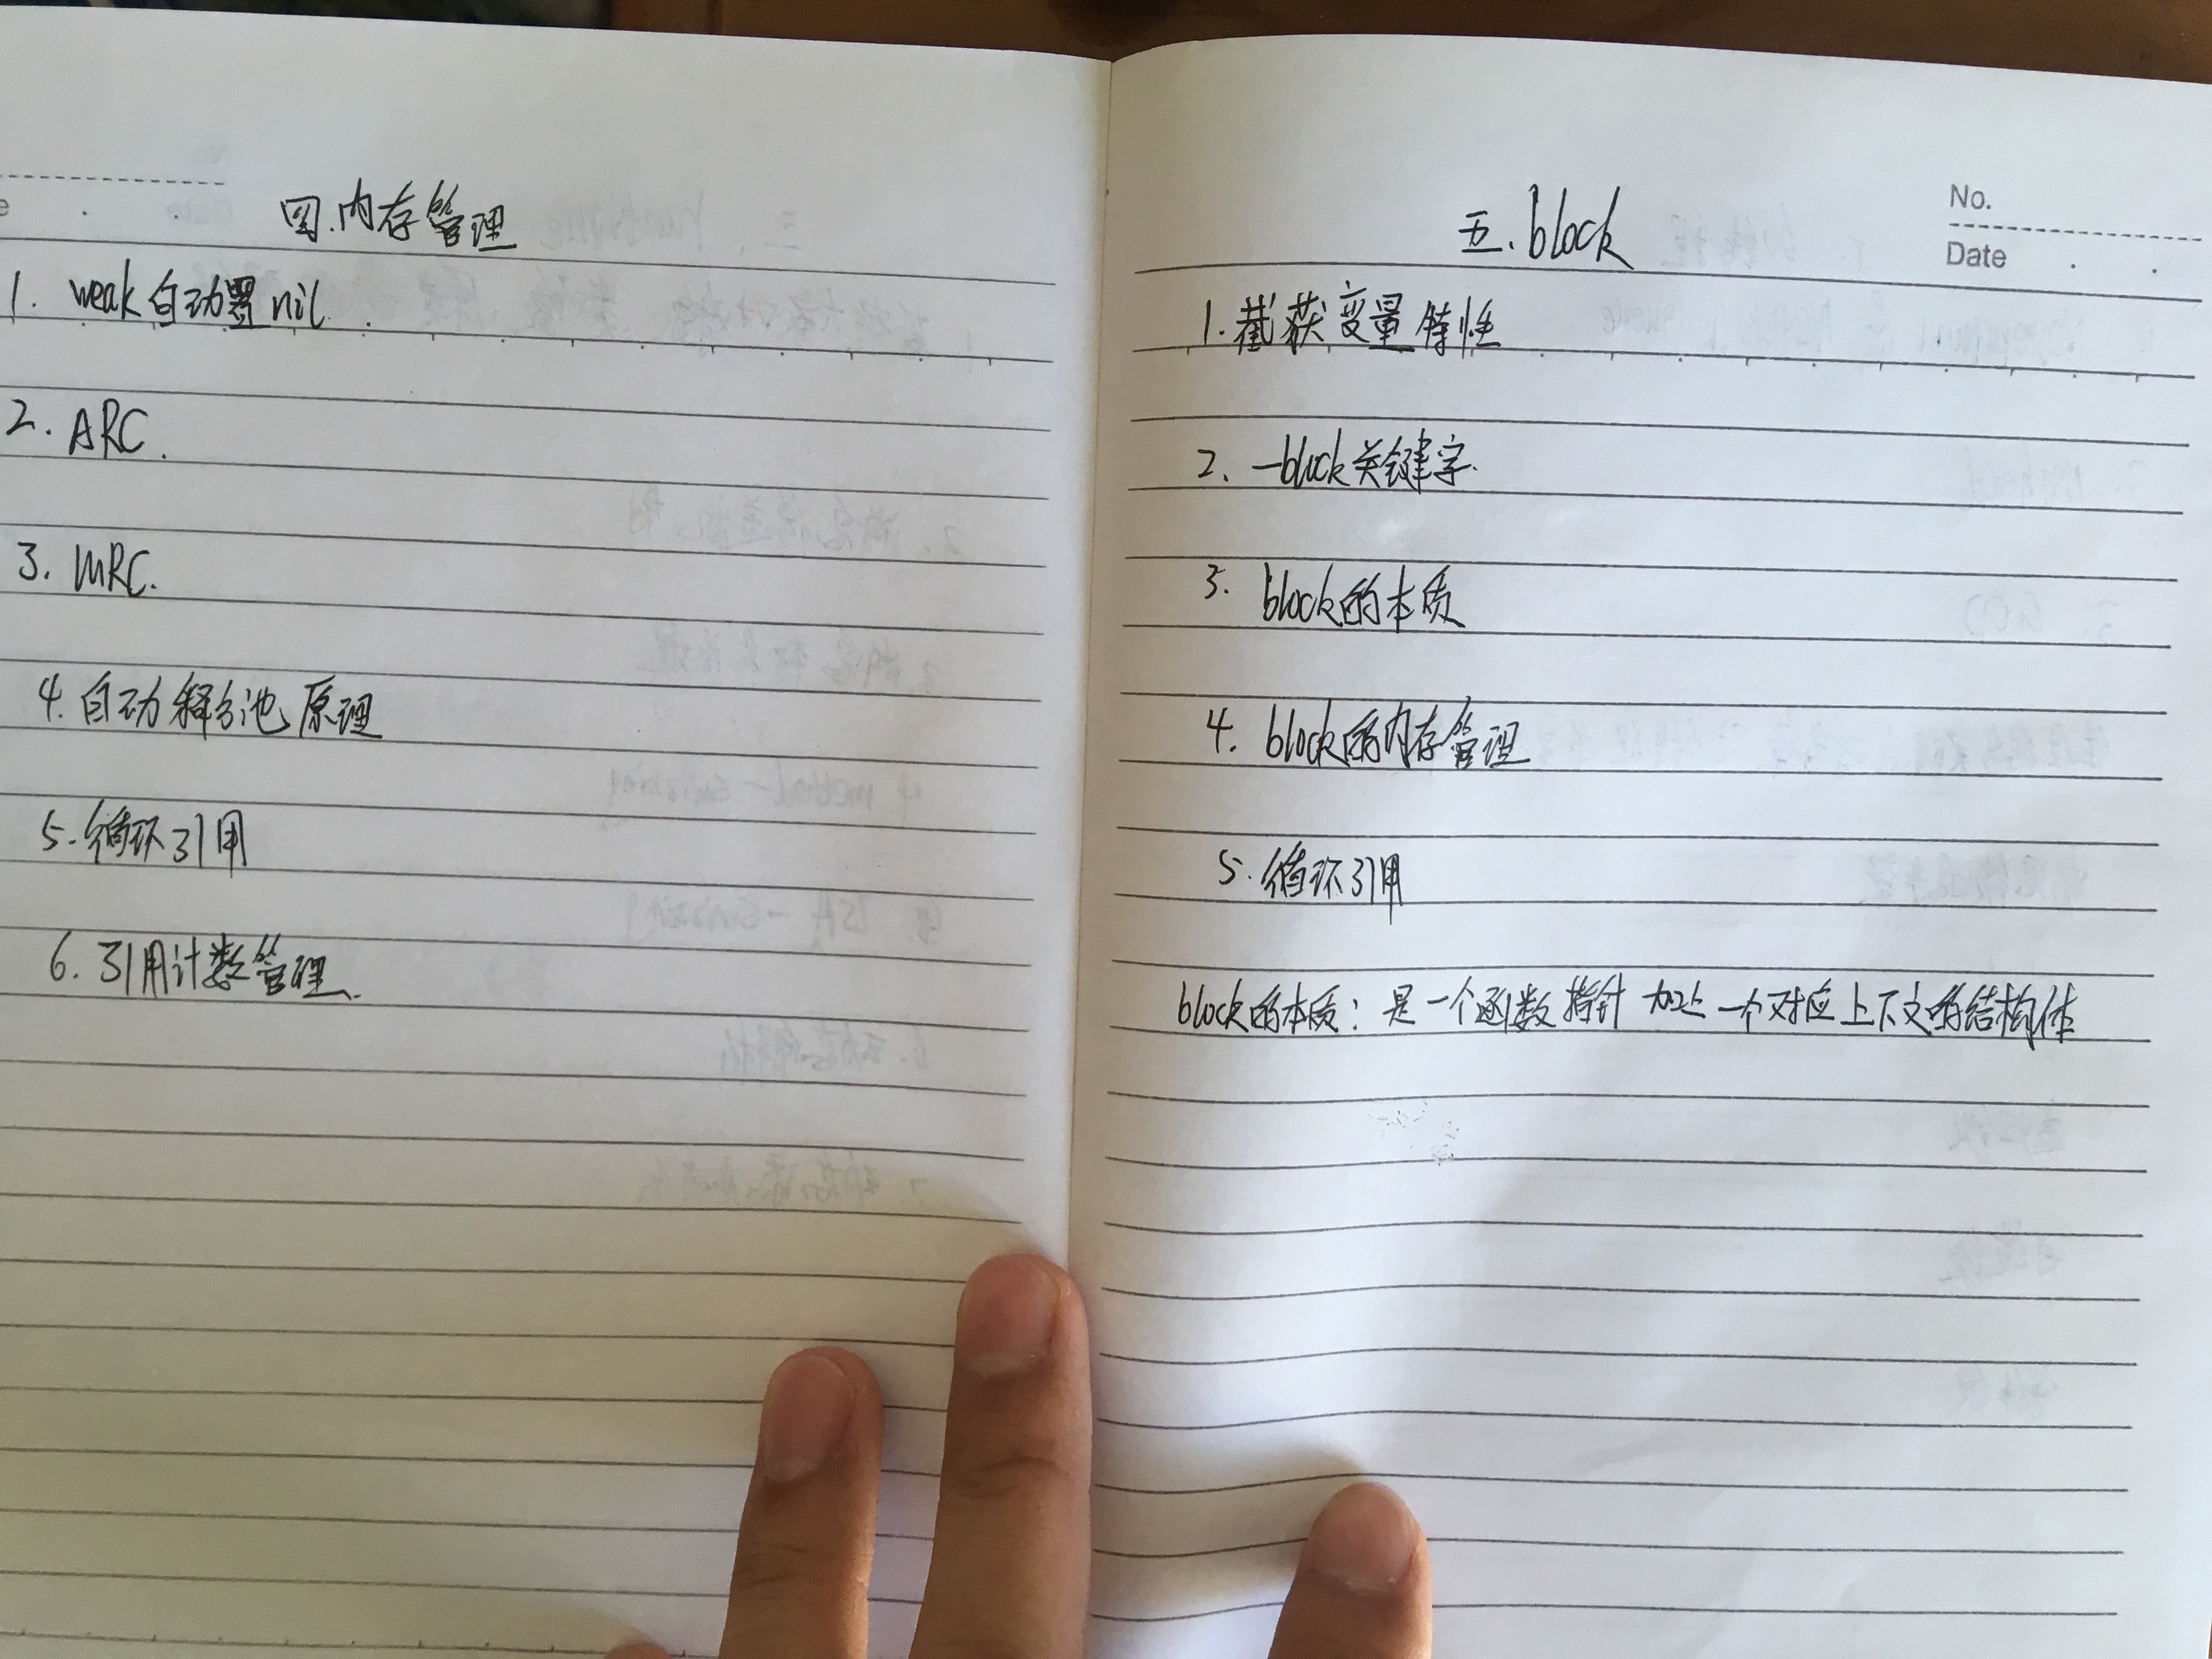 四.内存管理
1. weak自动置nil
2. ARC.
3. MRC.
4. 自动释放池原理
5. 循环引用
6. 引用计数管理.
No.
Date
五.block
1.截获变量特性
2. _block关键字
3. block的本质
4. block的内存管理
5.循环引用
block的本质: 是一个函数指针 加上 一个对应上下文的结构体